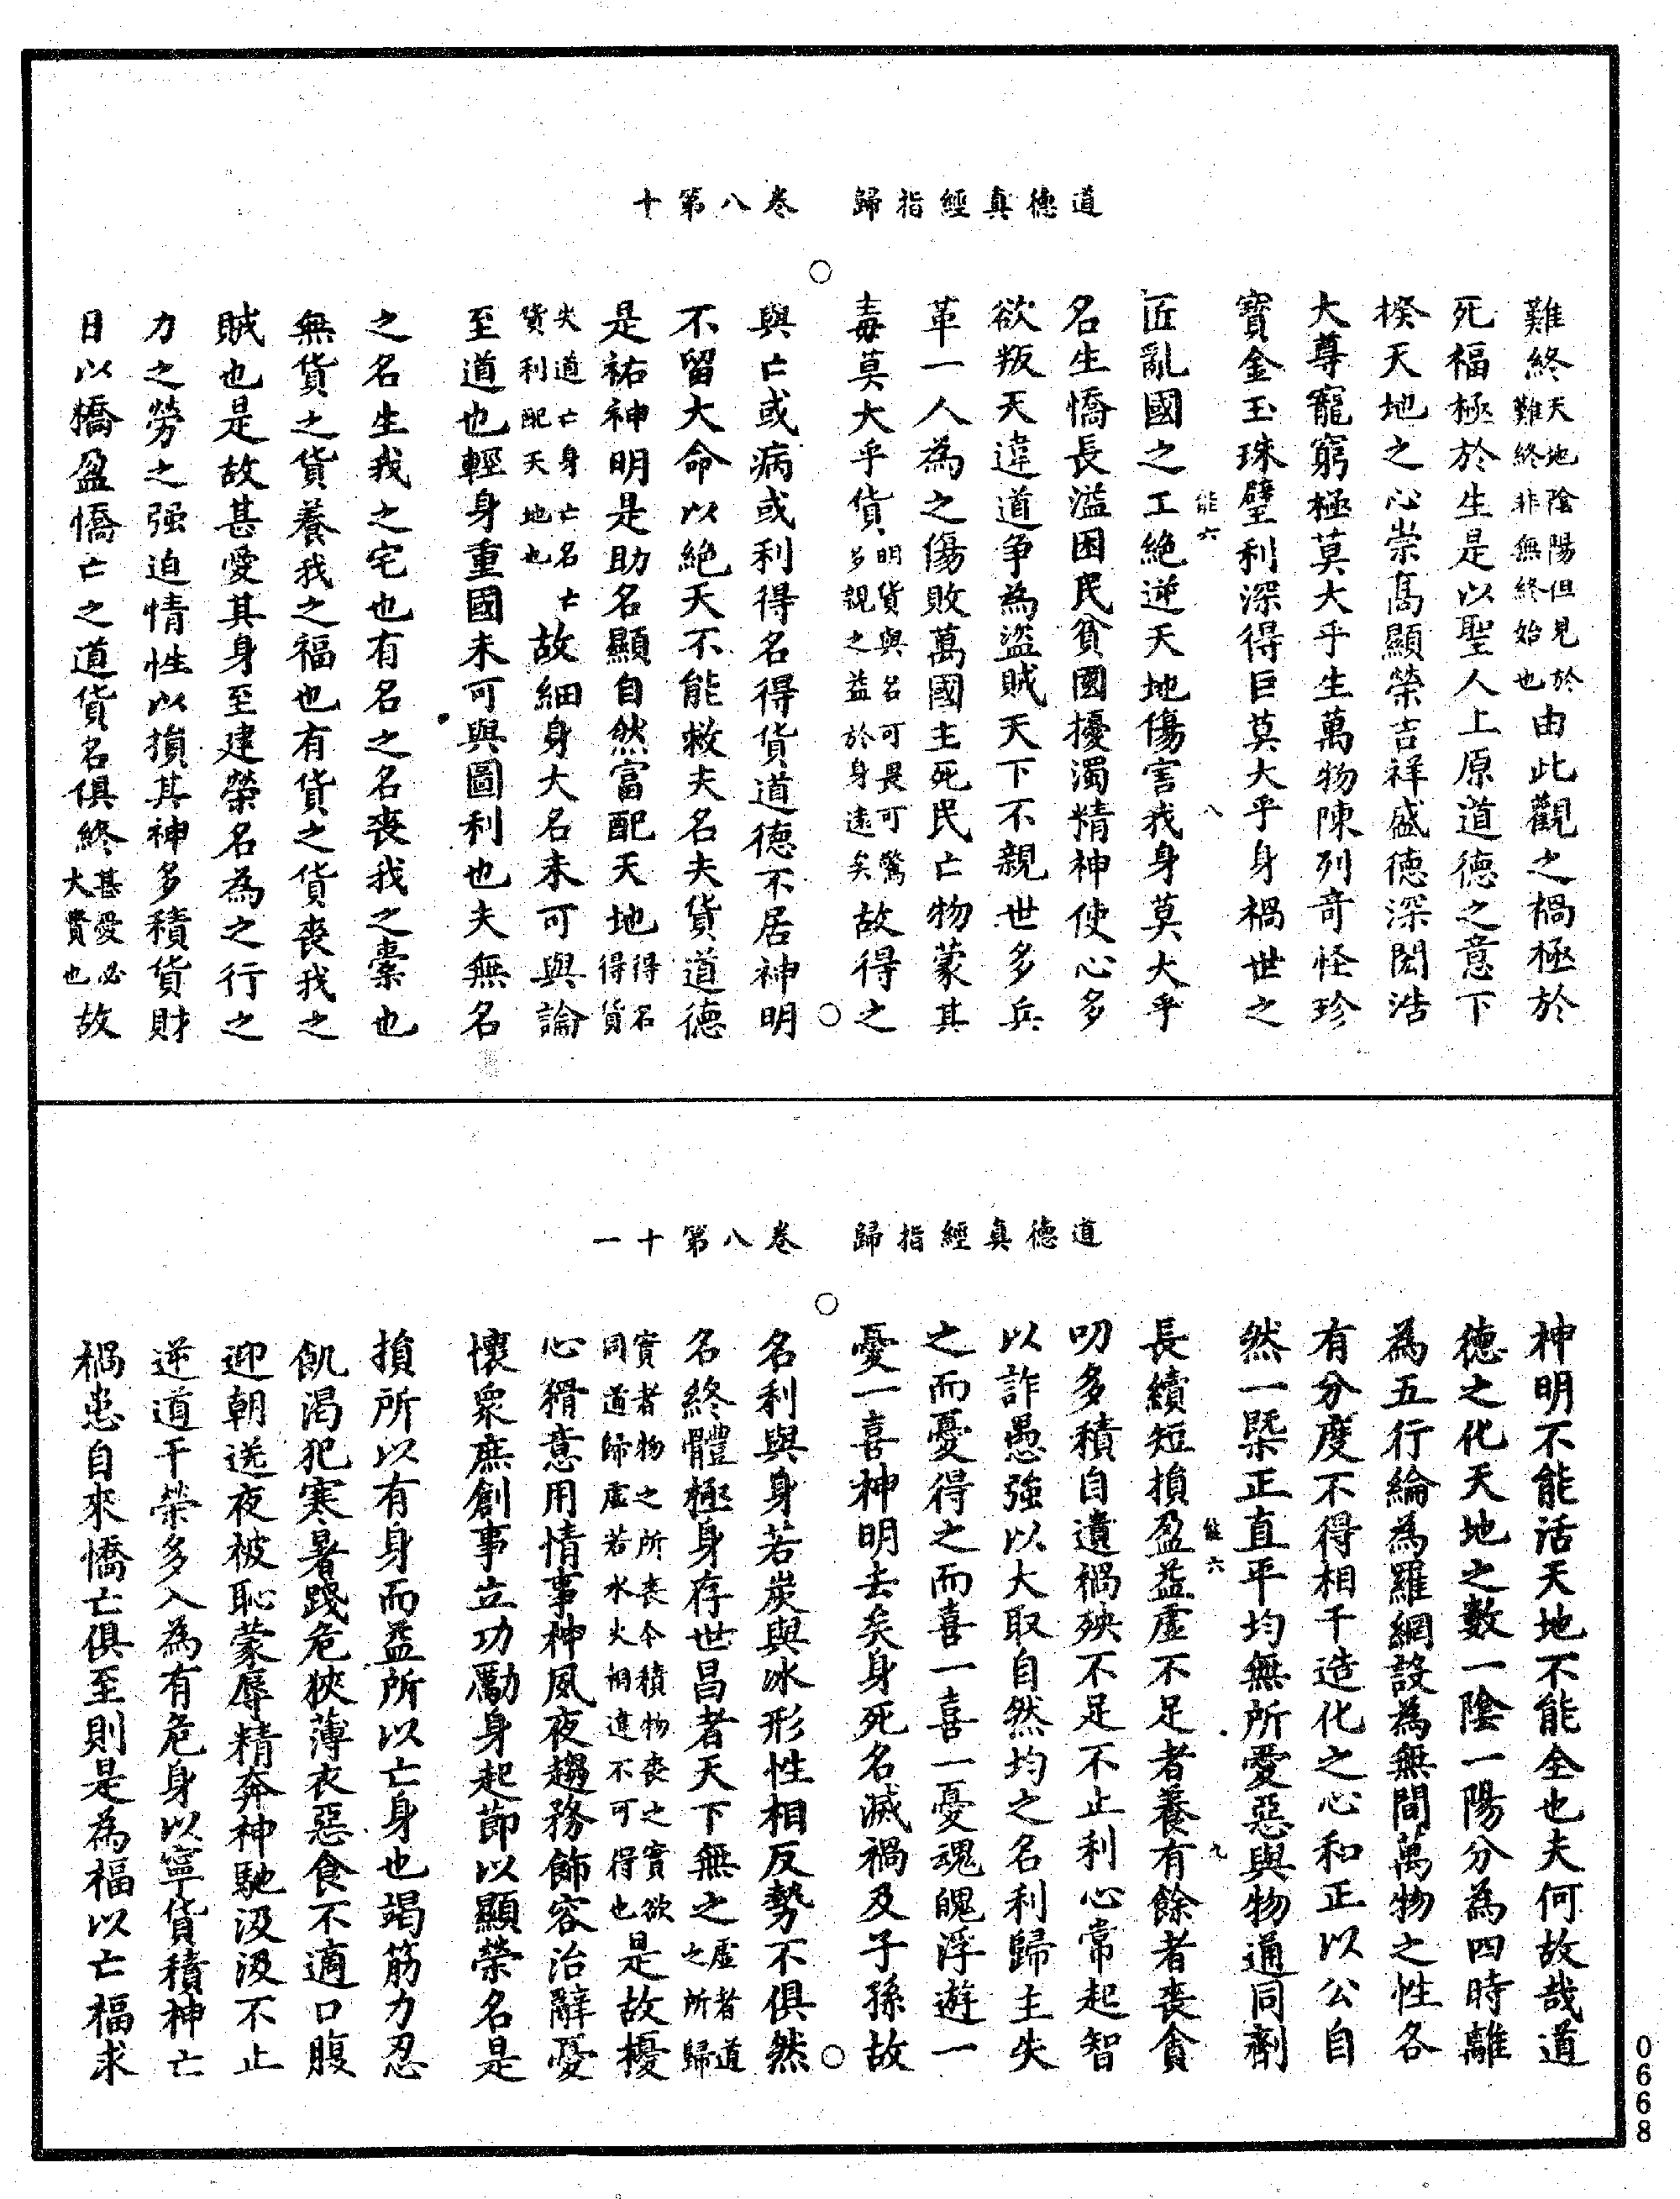 道德真經指歸　卷八第十
難終天地陰陽但見於難終非無終始也由此觀之禍極於
死福極於生是以聖人上原道德之意下
揆天地之心崇高顯榮吉祥盛德深閎浩
大尊寵窮極莫大乎生萬物陳列奇怪珍
寶金玉珠璧利深得巨莫大乎身禍世之
能六　八
匠亂國之工絕逆天地傷害我身莫大乎
名生憍長溢困民貧國擾濁精神使心多
欲叛天違道爭為盜賊天下不親世多兵
革一人為之傷敗萬國主死民亡物蒙其
毒莫大乎貨明貨與名可畏可驚多親之益於身遠矣故得之
與亡或病或利得名得貨道德不居神明
不留大命以絕天不能救夫名夫貨道德
是祐神明是助名顯自然富配天地得名得貨
失道亡身亡名亡貨利配天地也故細身大名未可與論
至道也輕身重國未可與圖利也夫無名
之名生我之宅也有名之名喪我之橐也
無貨之貨養我之福也有貨之貨喪我之
賊也是故甚愛其身至建榮名為之行之
力之勞之强迫情性以損其神多積貨財
日以憍盈憍亡之道貨名俱終甚愛必大費也故
道德真經指歸　卷八第十一
神明不能活天地不能全也夫何故哉道
德之化天地之數一陰一陽分為四時離
為五行綸為羅網設為無間萬物之性各
有分度不得相干造化之心和正以公自
然一槩正直平均無所愛惡與物通同劑
能六　九
長續短損盈益虛不足者養有餘者喪貪
叨多積自遺禍殃不足不止利心常起智
以詐愚強以大取自然均之名利歸主失
之而憂得之而喜一喜一憂魂魄浮遊一
憂一喜神明去矣身死名滅禍及子孫故
名利與身若炭與冰形性相反勢不俱然
名終體極身存世昌者天下無之虛者道之所歸
實者物之所喪今積物喪之實欲同道歸虛若水火相違不可得也是故擾
心猾意用情事神夙夜趨務飾容治辭憂
懷衆庶創事立功勵身起節以顯榮名是
損所以有身而益所以亡身也竭筋力忍
飢渴犯寒暑踐危狹薄衣惡食不適口腹
迎朝送夜被恥蒙辱精奔神馳汲汲不止
逆道干榮多入為有危身以寧貨積神亡
禍患自來憍亡俱至則是為福以亡福求
0668